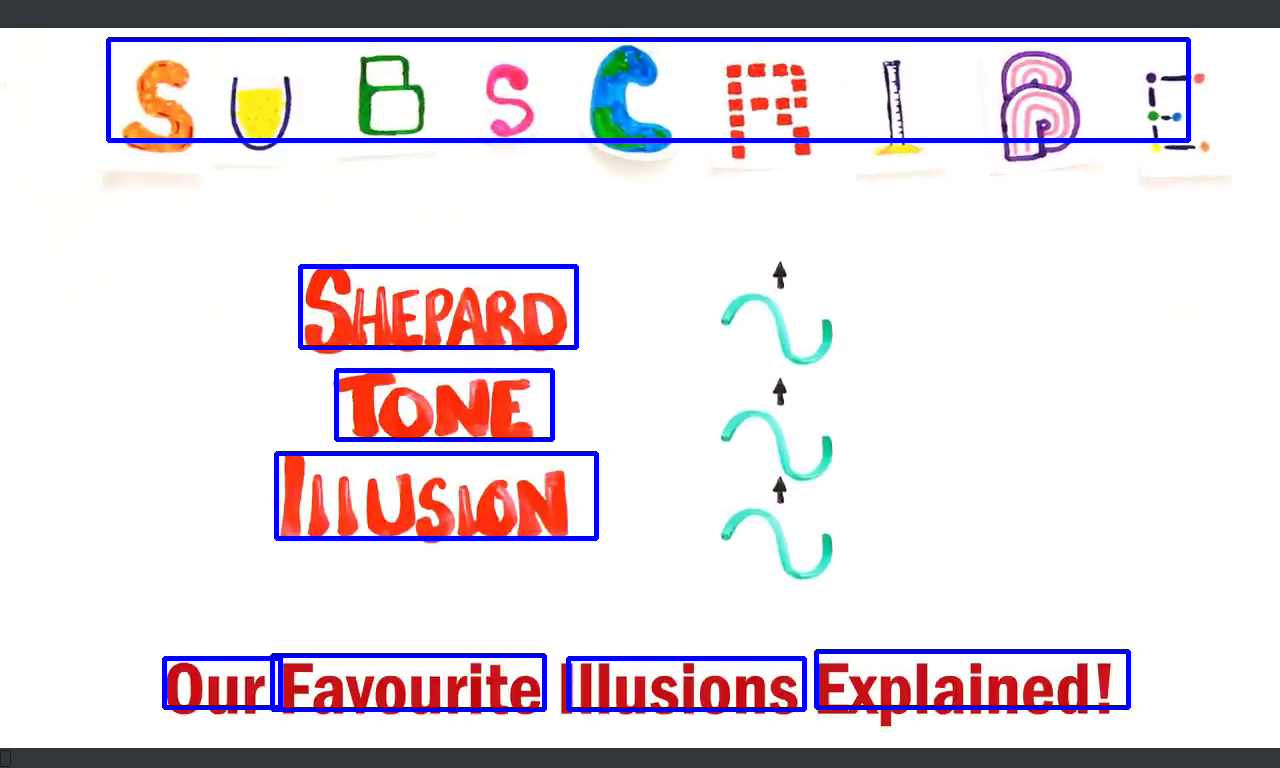 SUBSCRIBE
SHEPARD
TONE
ILLUSION
Our Favourite Illusions Explained!